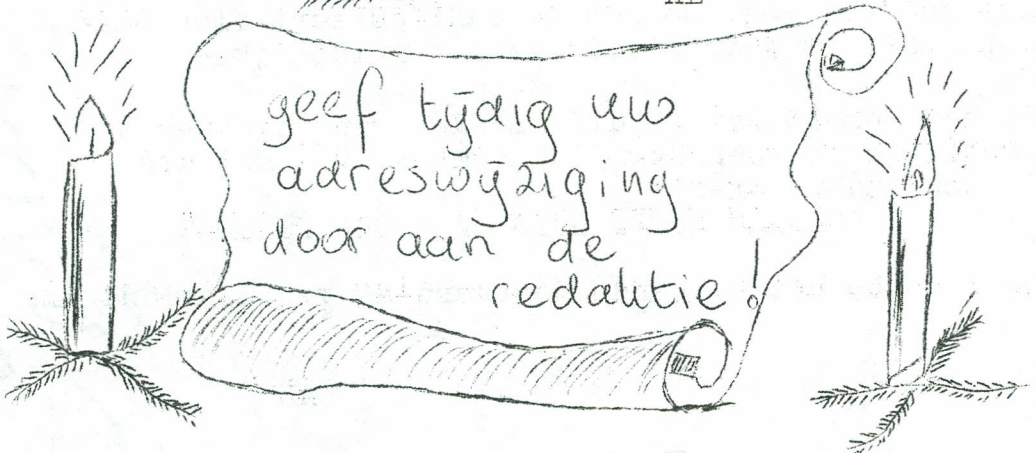 geef tijdig uw
adreswijziging
door aan de
redaktie!